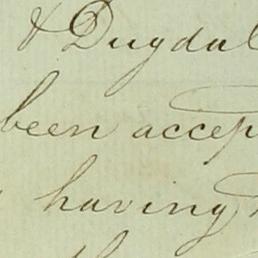 & Dugdal
been accep
having